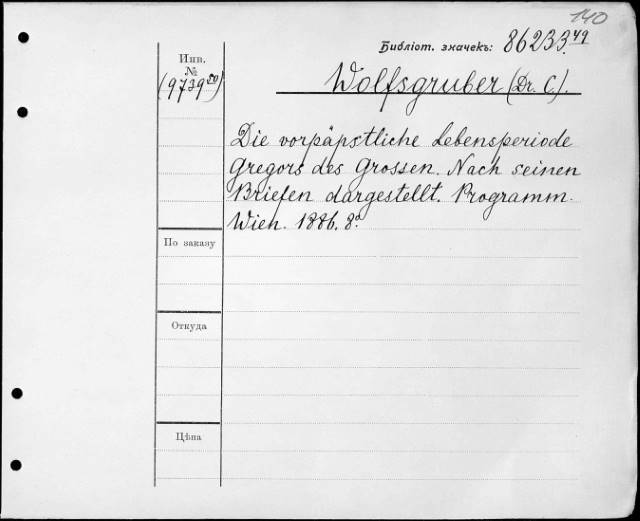 140
Библіот. значекъ: 86233.49
Инв.
№
(9739 50)
Wolfsgruber (Dr. C.).
Die vorpäpstliche Lebensperiode
Gregors des Grossen. Nach seinen
Briefen dargestellt. Programm.
Wien. 1886. 8º.
По заказу
Откуда
Цѣна